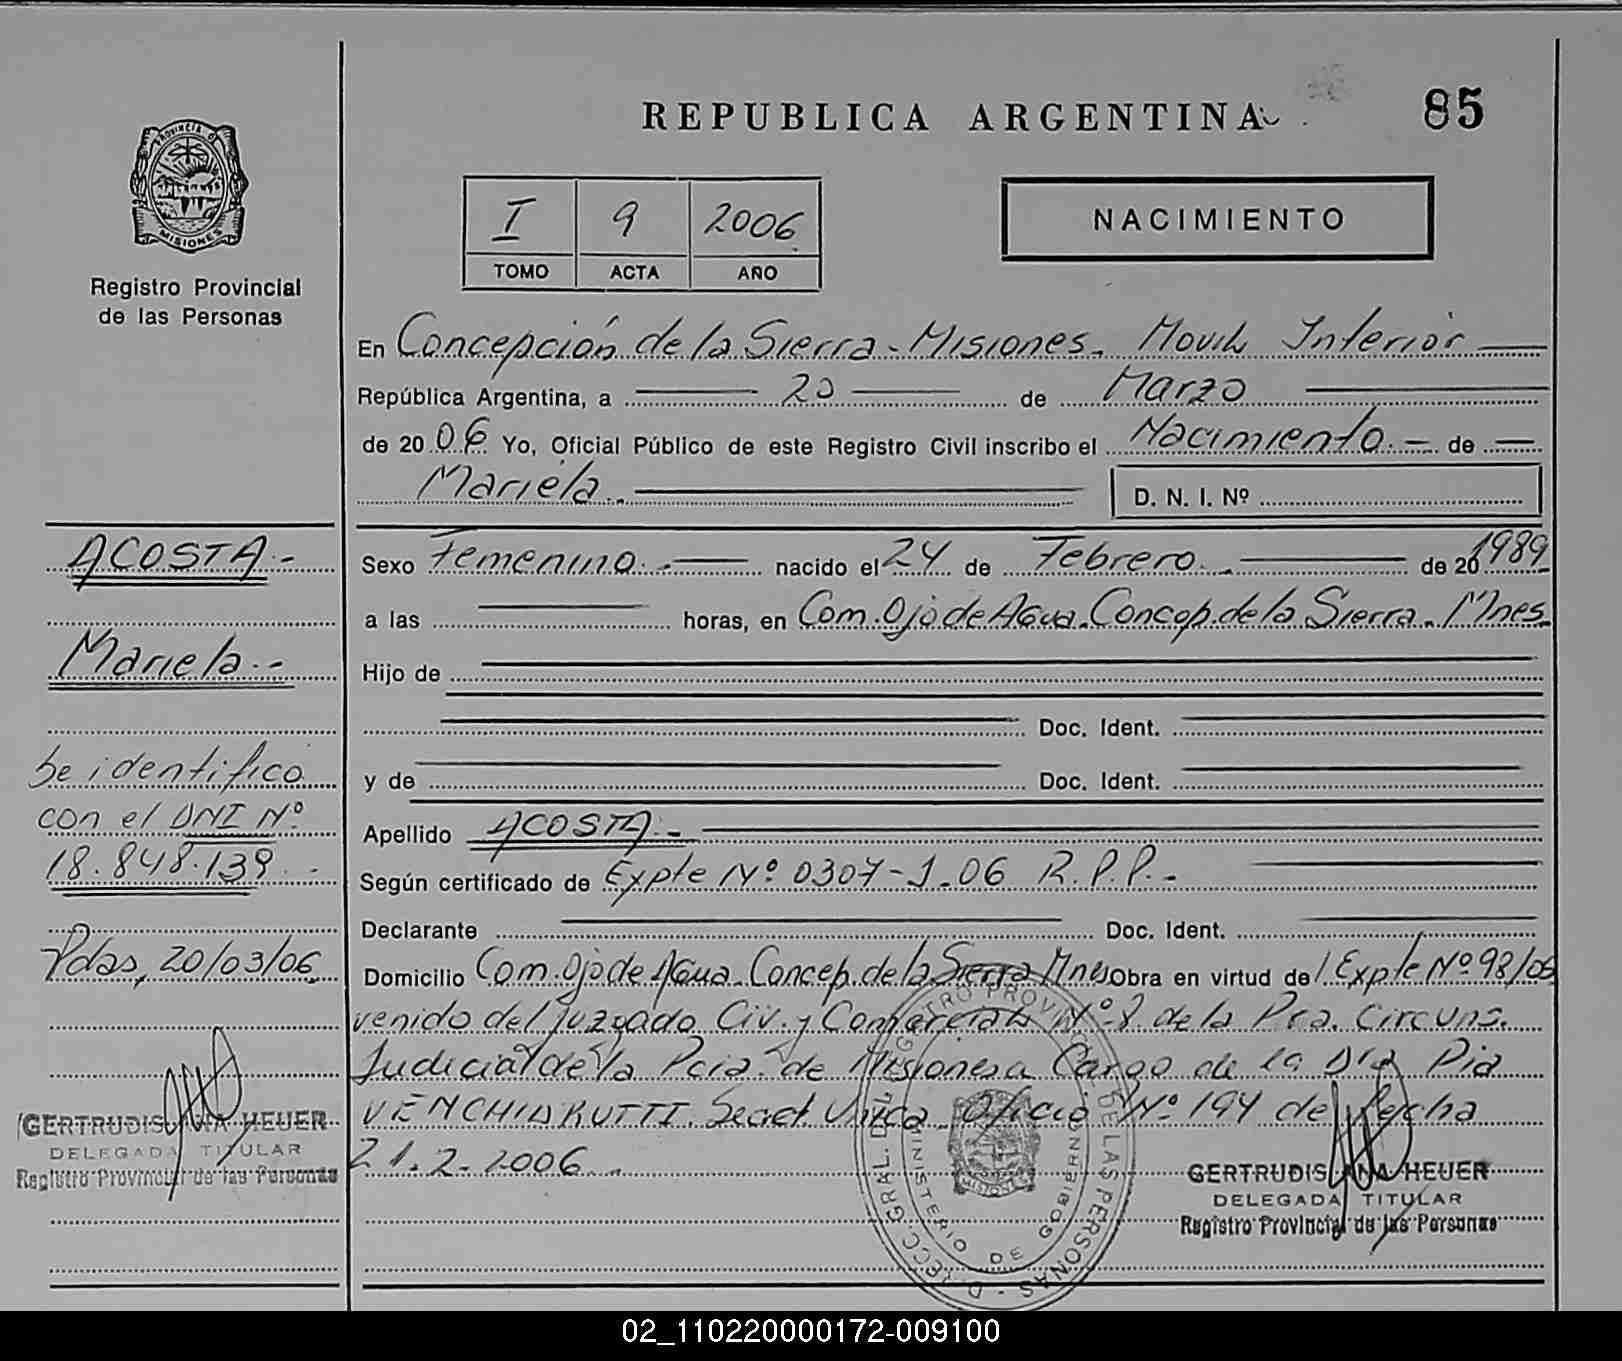 REPUBLICA ARGENTINA
85
PROVINCIA DE
MISIONES
Registro Provincial
de las Personas
I 9 2006
TOMO ACTA AÑO
NACIMIENTO
En Concepción de la Sierra - Misiones. Movil Interior
República Argentina, a 20 de Marzo
de 2006 Yo, Oficial Público de este Registro Civil inscribo el Nacimiento.- de
Mariela.-
D. N. I. Nº
ACOSTA.-
Mariela.-
Se identifico
con el DNI Nº
18.848.139.-
Pdas, 20/03/06
GERTRUDIS ANA HEUER
DELEGADA TITULAR
Registro Provincial de las Personas
Sexo Femenino.- nacido el 24 de Febrero.- de 20 1989
a las horas, en Com. Ojo de Agua. Concep. de la Sierra. Mnes.
Hijo de
Doc. Ident.
y de Doc. Ident.
Apellido ACOSTA.-
Según certificado de Expte Nº 0307-J-06 R.P.P.-
Declarante Doc. Ident.
Domicilio Com. Ojo de Agua. Concep. de la Sierra Mnes Obra en virtud de l Expte Nº 98/06
venido del Juzgado Civ. y Comercial Nº 8 de la Pra. Circuns.
Judicial de la Pcia. de Misiones a Cargo de la Dra Pia
VENCHIARUTTI. Secret. Unica. Oficio Nº 194 de fecha
21.2.2006.-
DIRECC. GRAL. DEL REGISTRO PROVINCIAL DE LAS PERSONAS -
MINISTERIO DE GOBIERNO
MISIONES
GERTRUDIS ANA HEUER
DELEGADA TITULAR
Registro Provincial de las Personas
02_110220000172-009100